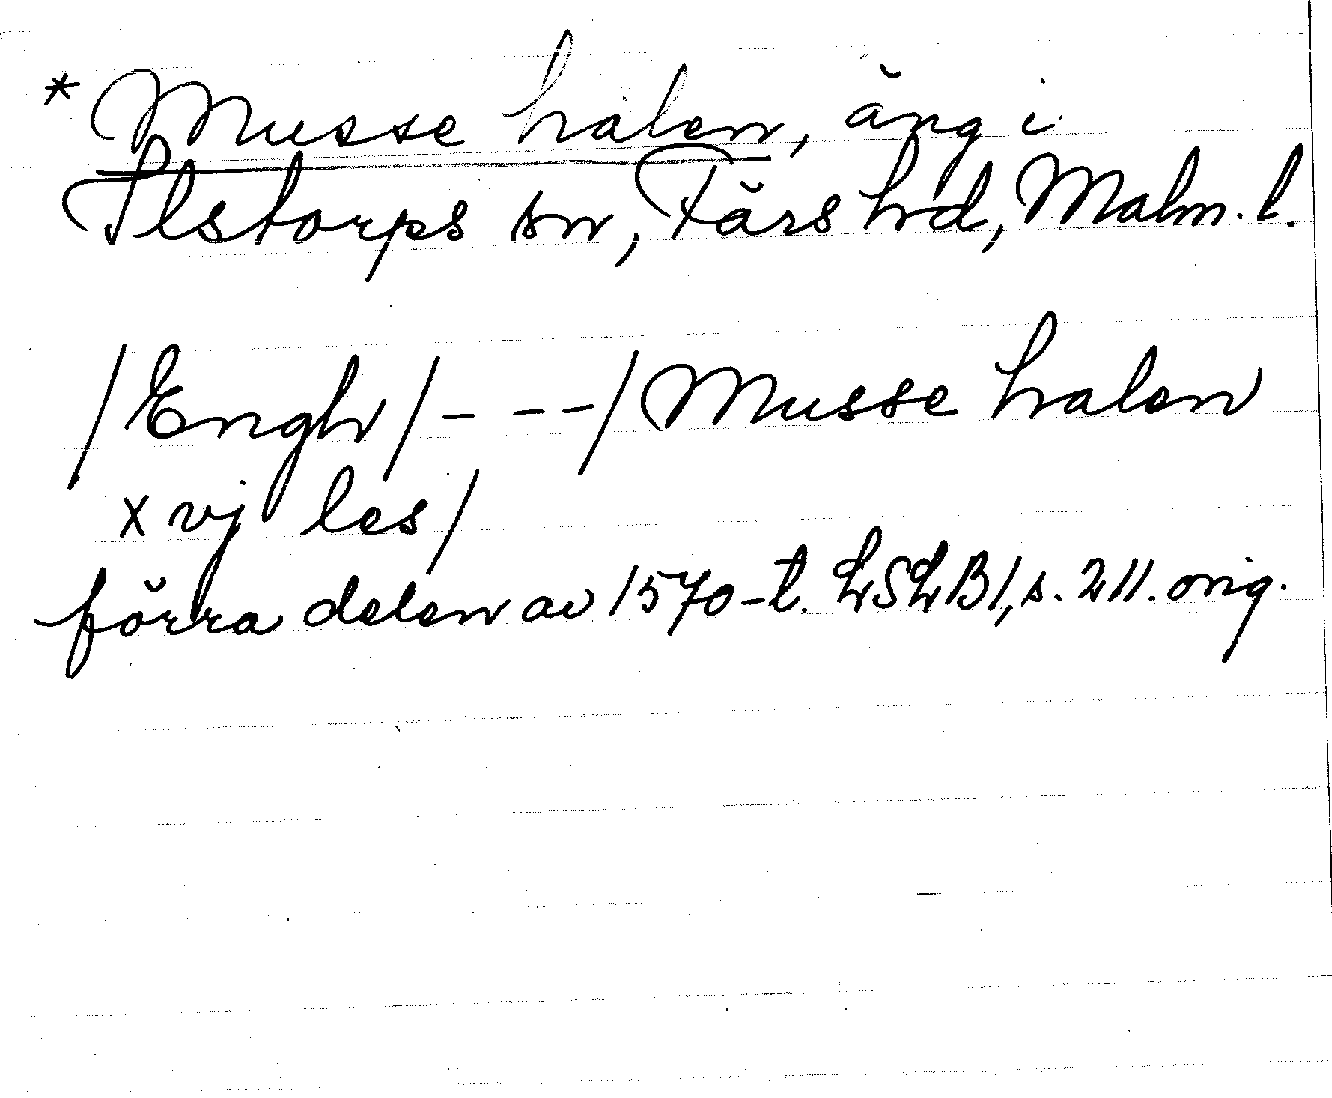 * Musse halen, äng i
Ilstorps sn, Färs hd, Malm. l.
/Engh/---/Musse halen
xvj les/
förra delen av 1570-t. LSLB1, s. 211. orig.